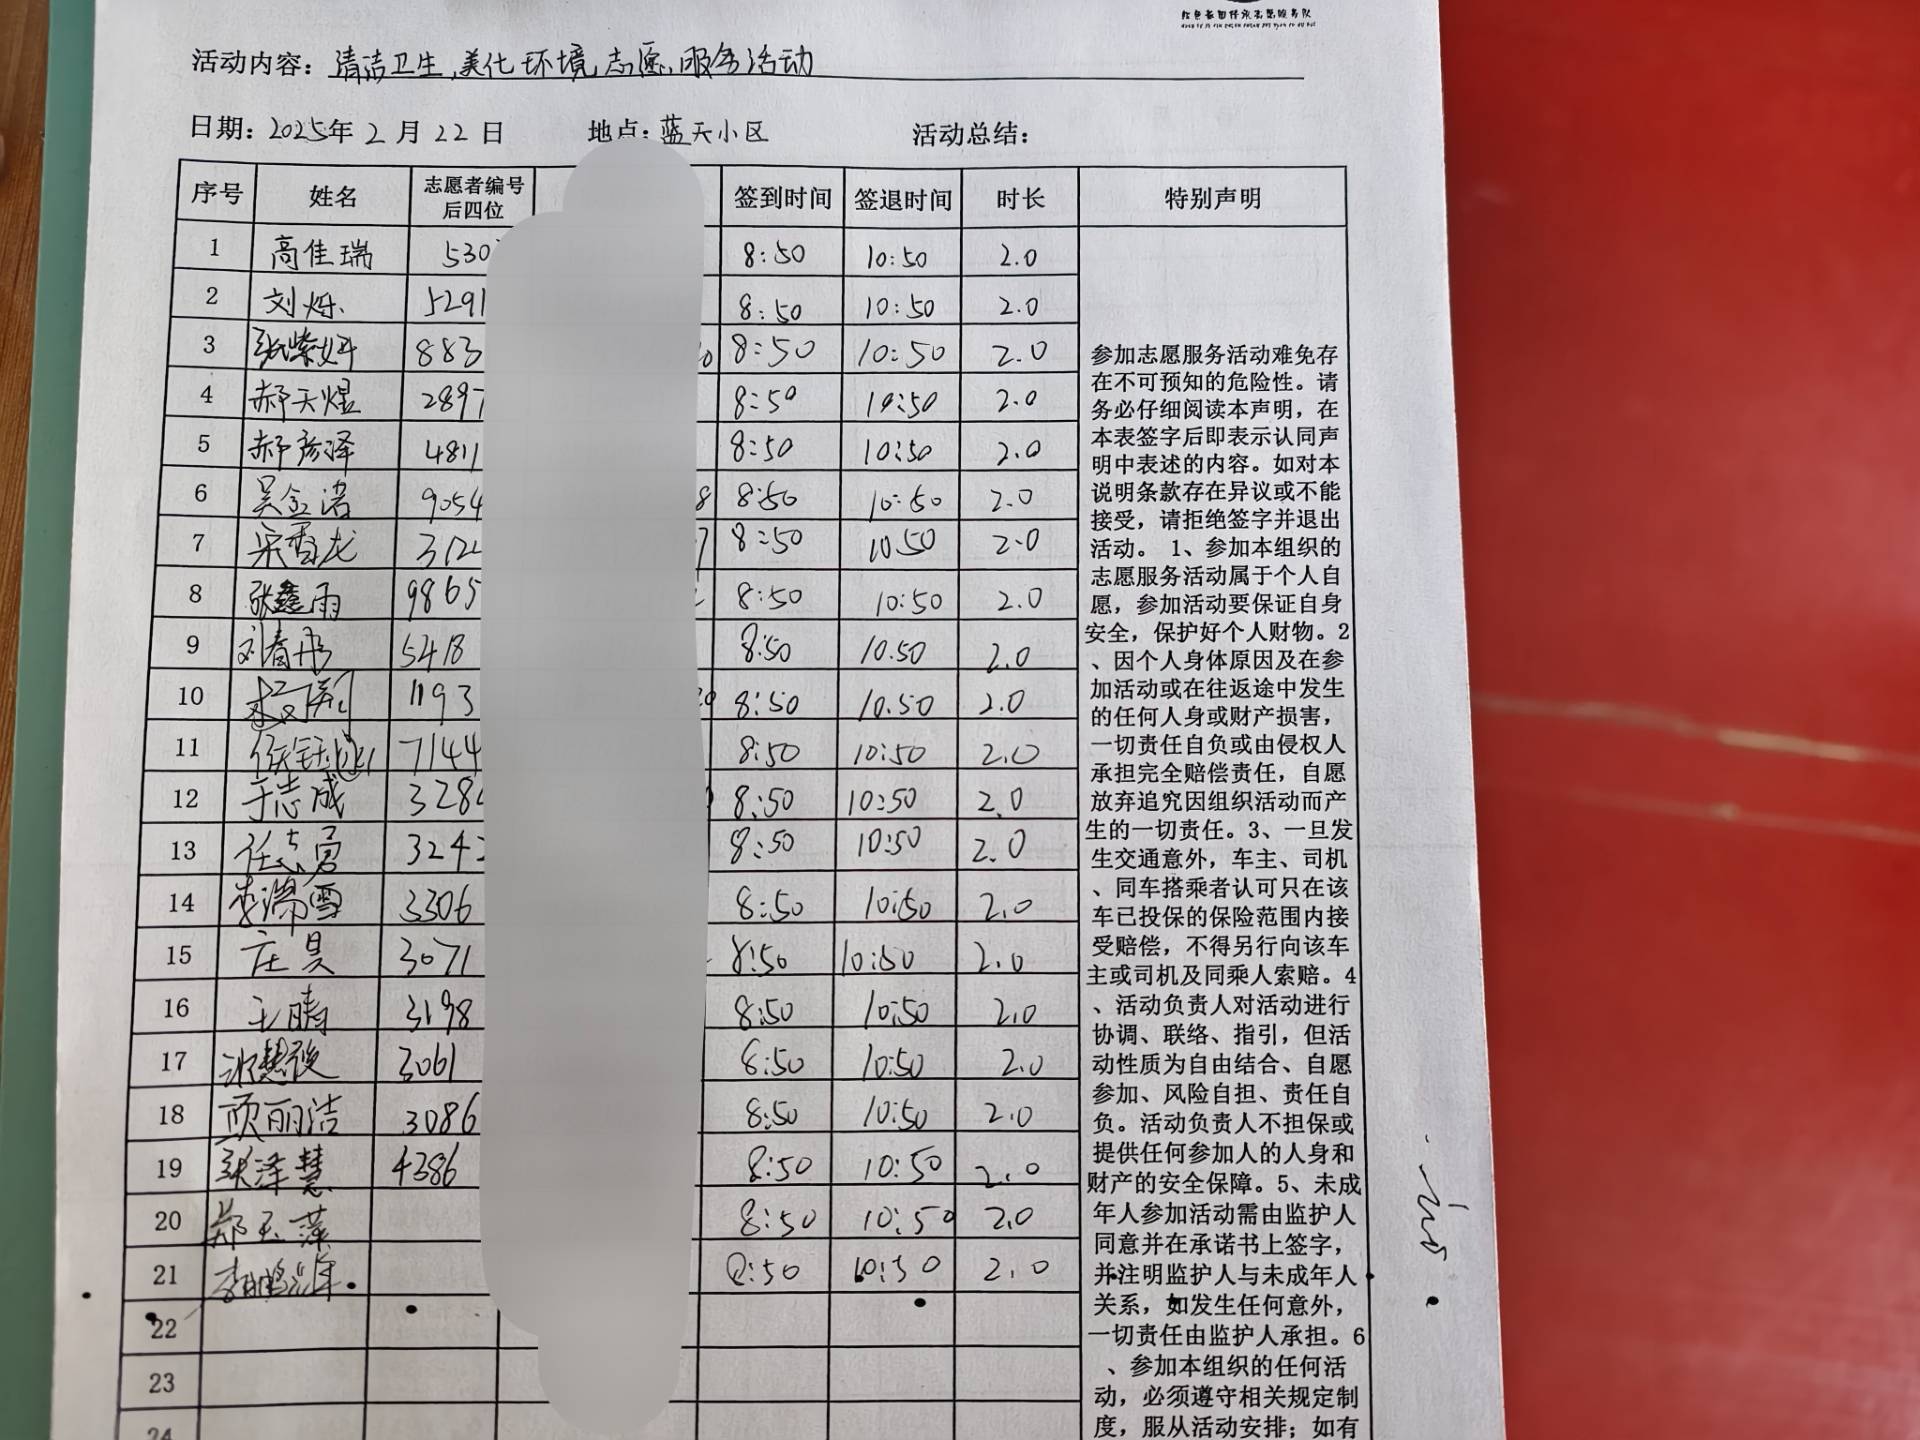 活动内容：清洁卫生,美化环境志愿服务活动
日期：2025年2月22日 地点：蓝天小区 活动总结：
序号 姓名 志愿者编号后四位 签到时间 签退时间 时长 特别声明
1 高佳瑞 530 8:50 10:50 2.0
2 刘烁 5291 8:50 10:50 2.0
3 张紫妍 883 8:50 10:50 2.0
4 郝天煜 2897 8:50 10:50 2.0
5 郝彦泽 4811 8:50 10:50 2.0
6 吴金诺 9054 8:50 10:50 2.0
7 8:50 10.50 2.0
8 张鑫雨 9865 8:50 10:50 2.0
9 5418 8:50 10.50 2.0
10 1193 8:50 10.50 2.0
11 7144 8:50 10:50 2.0
12 于志成 328 8:50 10:50 2.0
13 任志勇 324 8:50 10:50 2.0
14 李瑞雪 3306 8:50 10:50 2.0
15 庄昊 3071 8:50 10:50 2.0
16 王晴 3198 8:50 10:50 2.0
17 3061 8:50 10:50 2.0
18 顾丽洁 3086 8:50 10:50 2.0
19 张泽慧 4386 8:50 10:50 2.0
20 郑玉萍 8:50 10:50 2.0
21 8:50 10:50 2.0
22
23
24
参加志愿服务活动难免存
在不可预知的危险性。请
务必仔细阅读本声明，在
本表签字后即表示认同声
明中表述的内容。如对本
说明条款存在异议或不能
接受，请拒绝签字并退出
活动。 1、参加本组织的
志愿服务活动属于个人自
愿，参加活动要保证自身
安全，保护好个人财物。2
、因个人身体原因及在参
加活动或在往返途中发生
的任何人身或财产损害，
一切责任自负或由侵权人
承担完全赔偿责任，自愿
放弃追究因组织活动而产
生的一切责任。3、一旦发
生交通意外，车主、司机
、同车搭乘者认可只在该
车已投保的保险范围内接
受赔偿，不得另行向该车
主或司机及同乘人索赔。4
、活动负责人对活动进行
协调、联络、指引，但活
动性质为自由结合、自愿
参加、风险自担、责任自
负。活动负责人不担保或
提供任何参加人的人身和
财产的安全保障。5、未成
年人参加活动需由监护人
同意并在承诺书上签字，
并注明监护人与未成年人
关系，如发生任何意外，
一切责任由监护人承担。6
、参加本组织的任何活
动，必须遵守相关规定制
度，服从活动安排；如有